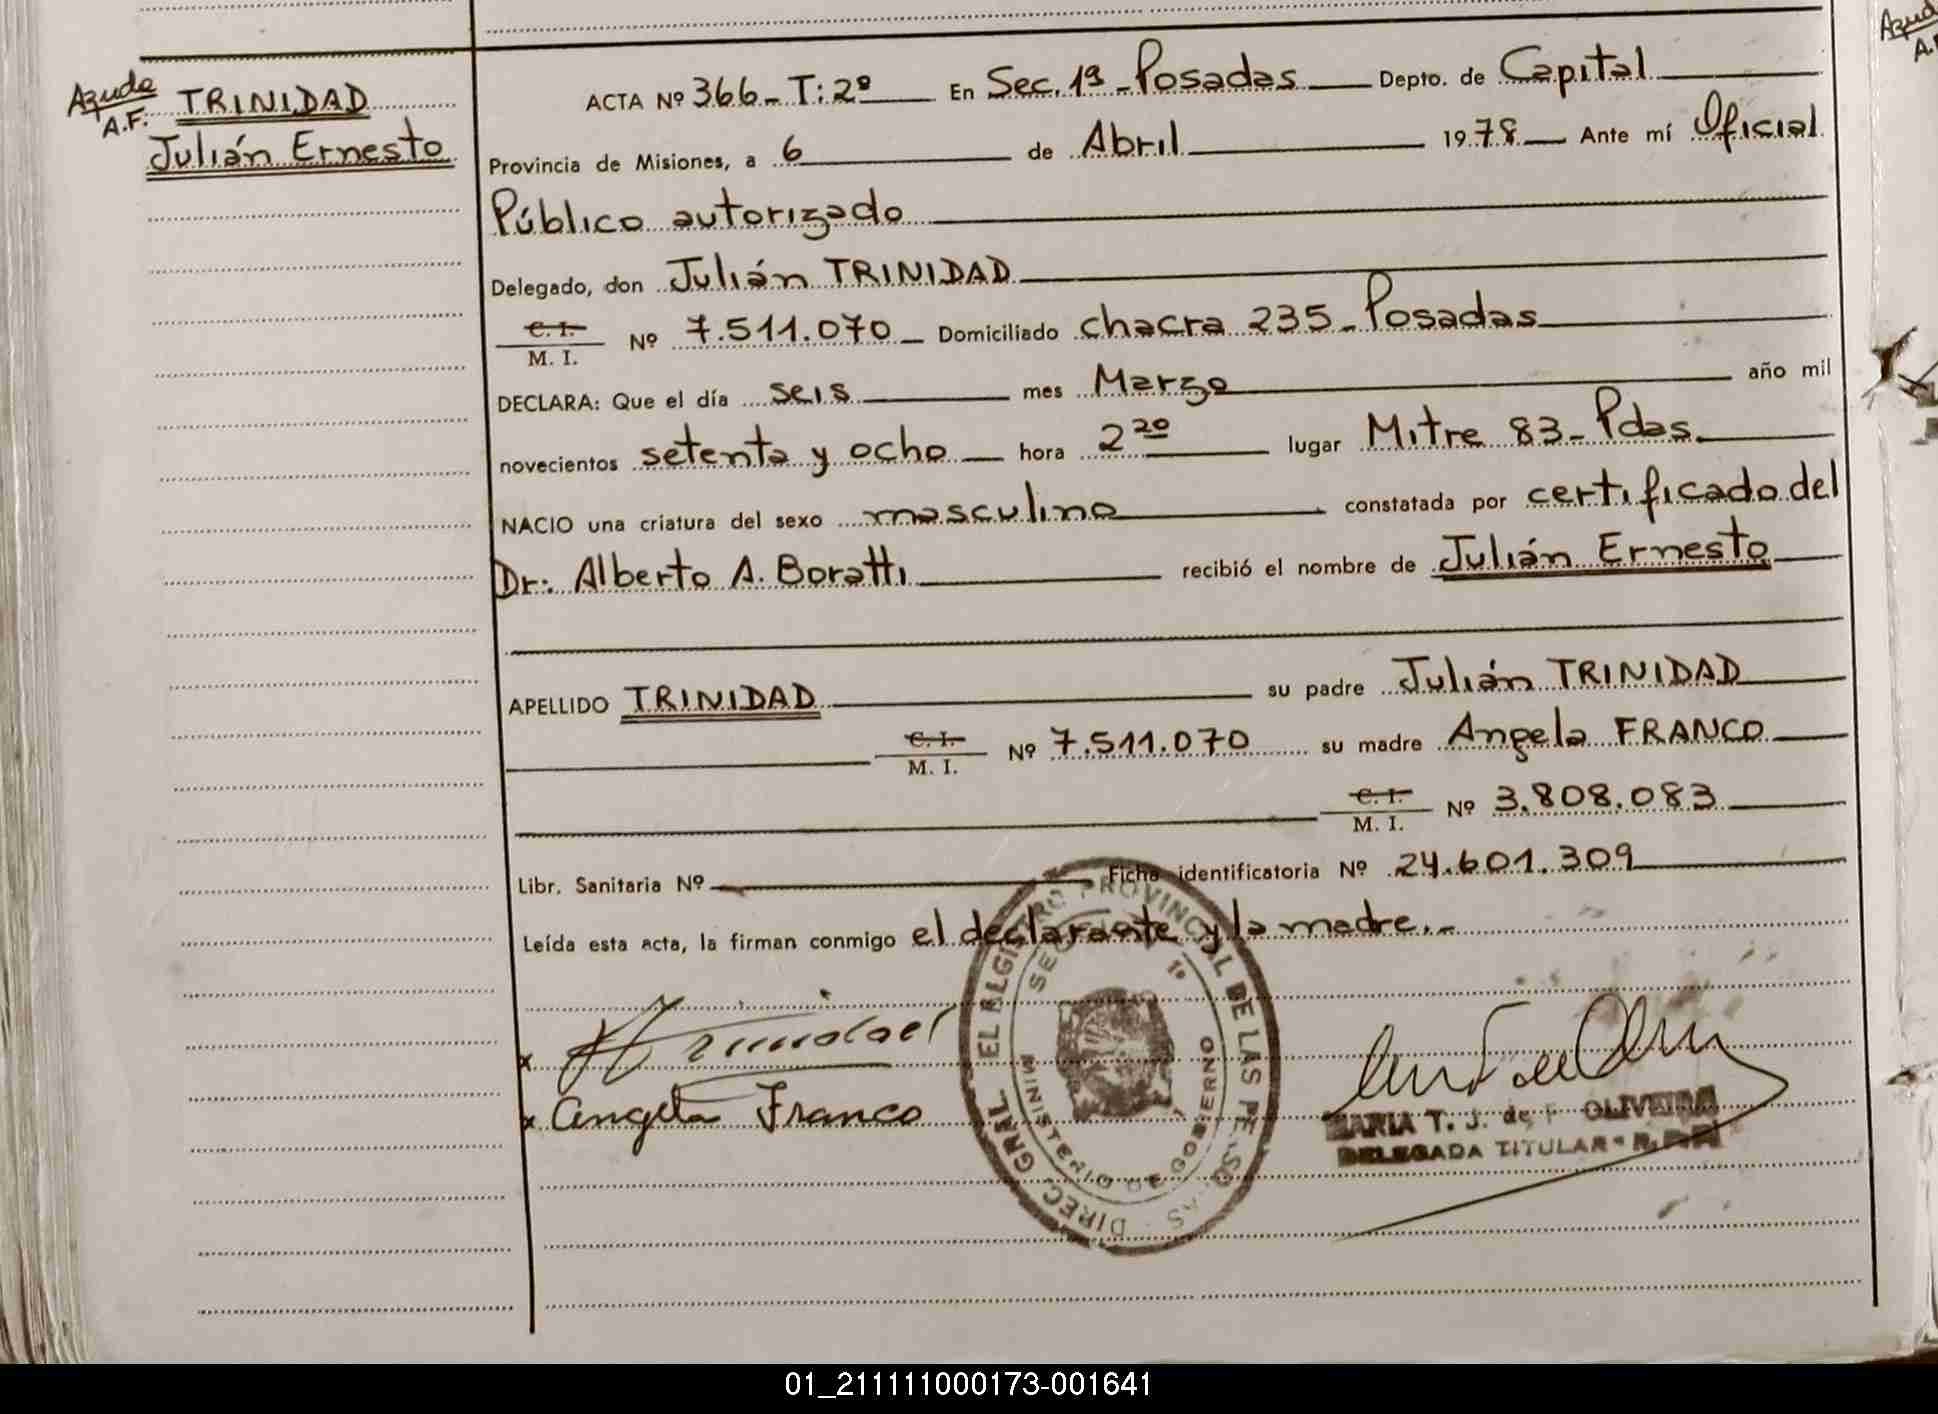 Ayude
A.F.
TRINIDAD
Julián Ernesto
ACTA Nº 366 - T: 2º En Sec. 1ª - Posadas Depto. de Capital
Provincia de Misiones, a 6 de Abril 1978 Ante mí Oficial
Público autorizado
Delegado, don Julián TRINIDAD
C. I.
M. I. Nº 7.511.070 Domiciliado chacra 235 - Posadas
DECLARA: Que el día seis mes Marzo año mil
novecientos setenta y ocho hora 2 20 lugar Mitre 83 - Pdas.
NACIO una criatura del sexo masculino constatada por certificado del
Dr: Alberto A. Boratti recibió el nombre de Julián Ernesto
APELLIDO TRINIDAD su padre Julián TRINIDAD
C. I.
M. I. Nº 7.511.070 su madre Angela FRANCO
C. I.
M. I. Nº 3.808.083
Libr. Sanitaria Nº Ficha identificatoria Nº 24.601.309
Leída esta acta, la firman conmigo el declarante y la madre.-
x Trinidad
x Angela Franco
DIREC. GRAL. REGISTRO PROVINCIAL DE LAS PERSONAS
MINISTERIO DE GOBIERNO
1º
MARIA T. J. de F OLIVEIRA
DELEGADA TITULAR
01_211111000173-001641